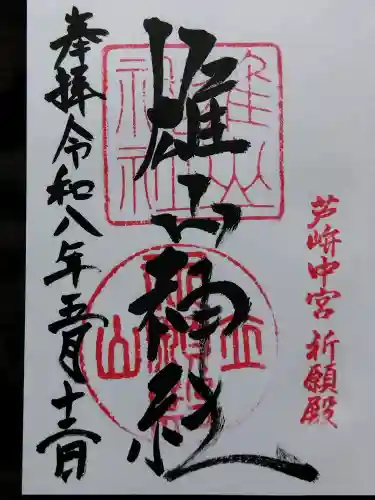 芦峅中宮 祈願殿
雄山神社
雄山
神社
奉拝 令和八年五月十二日